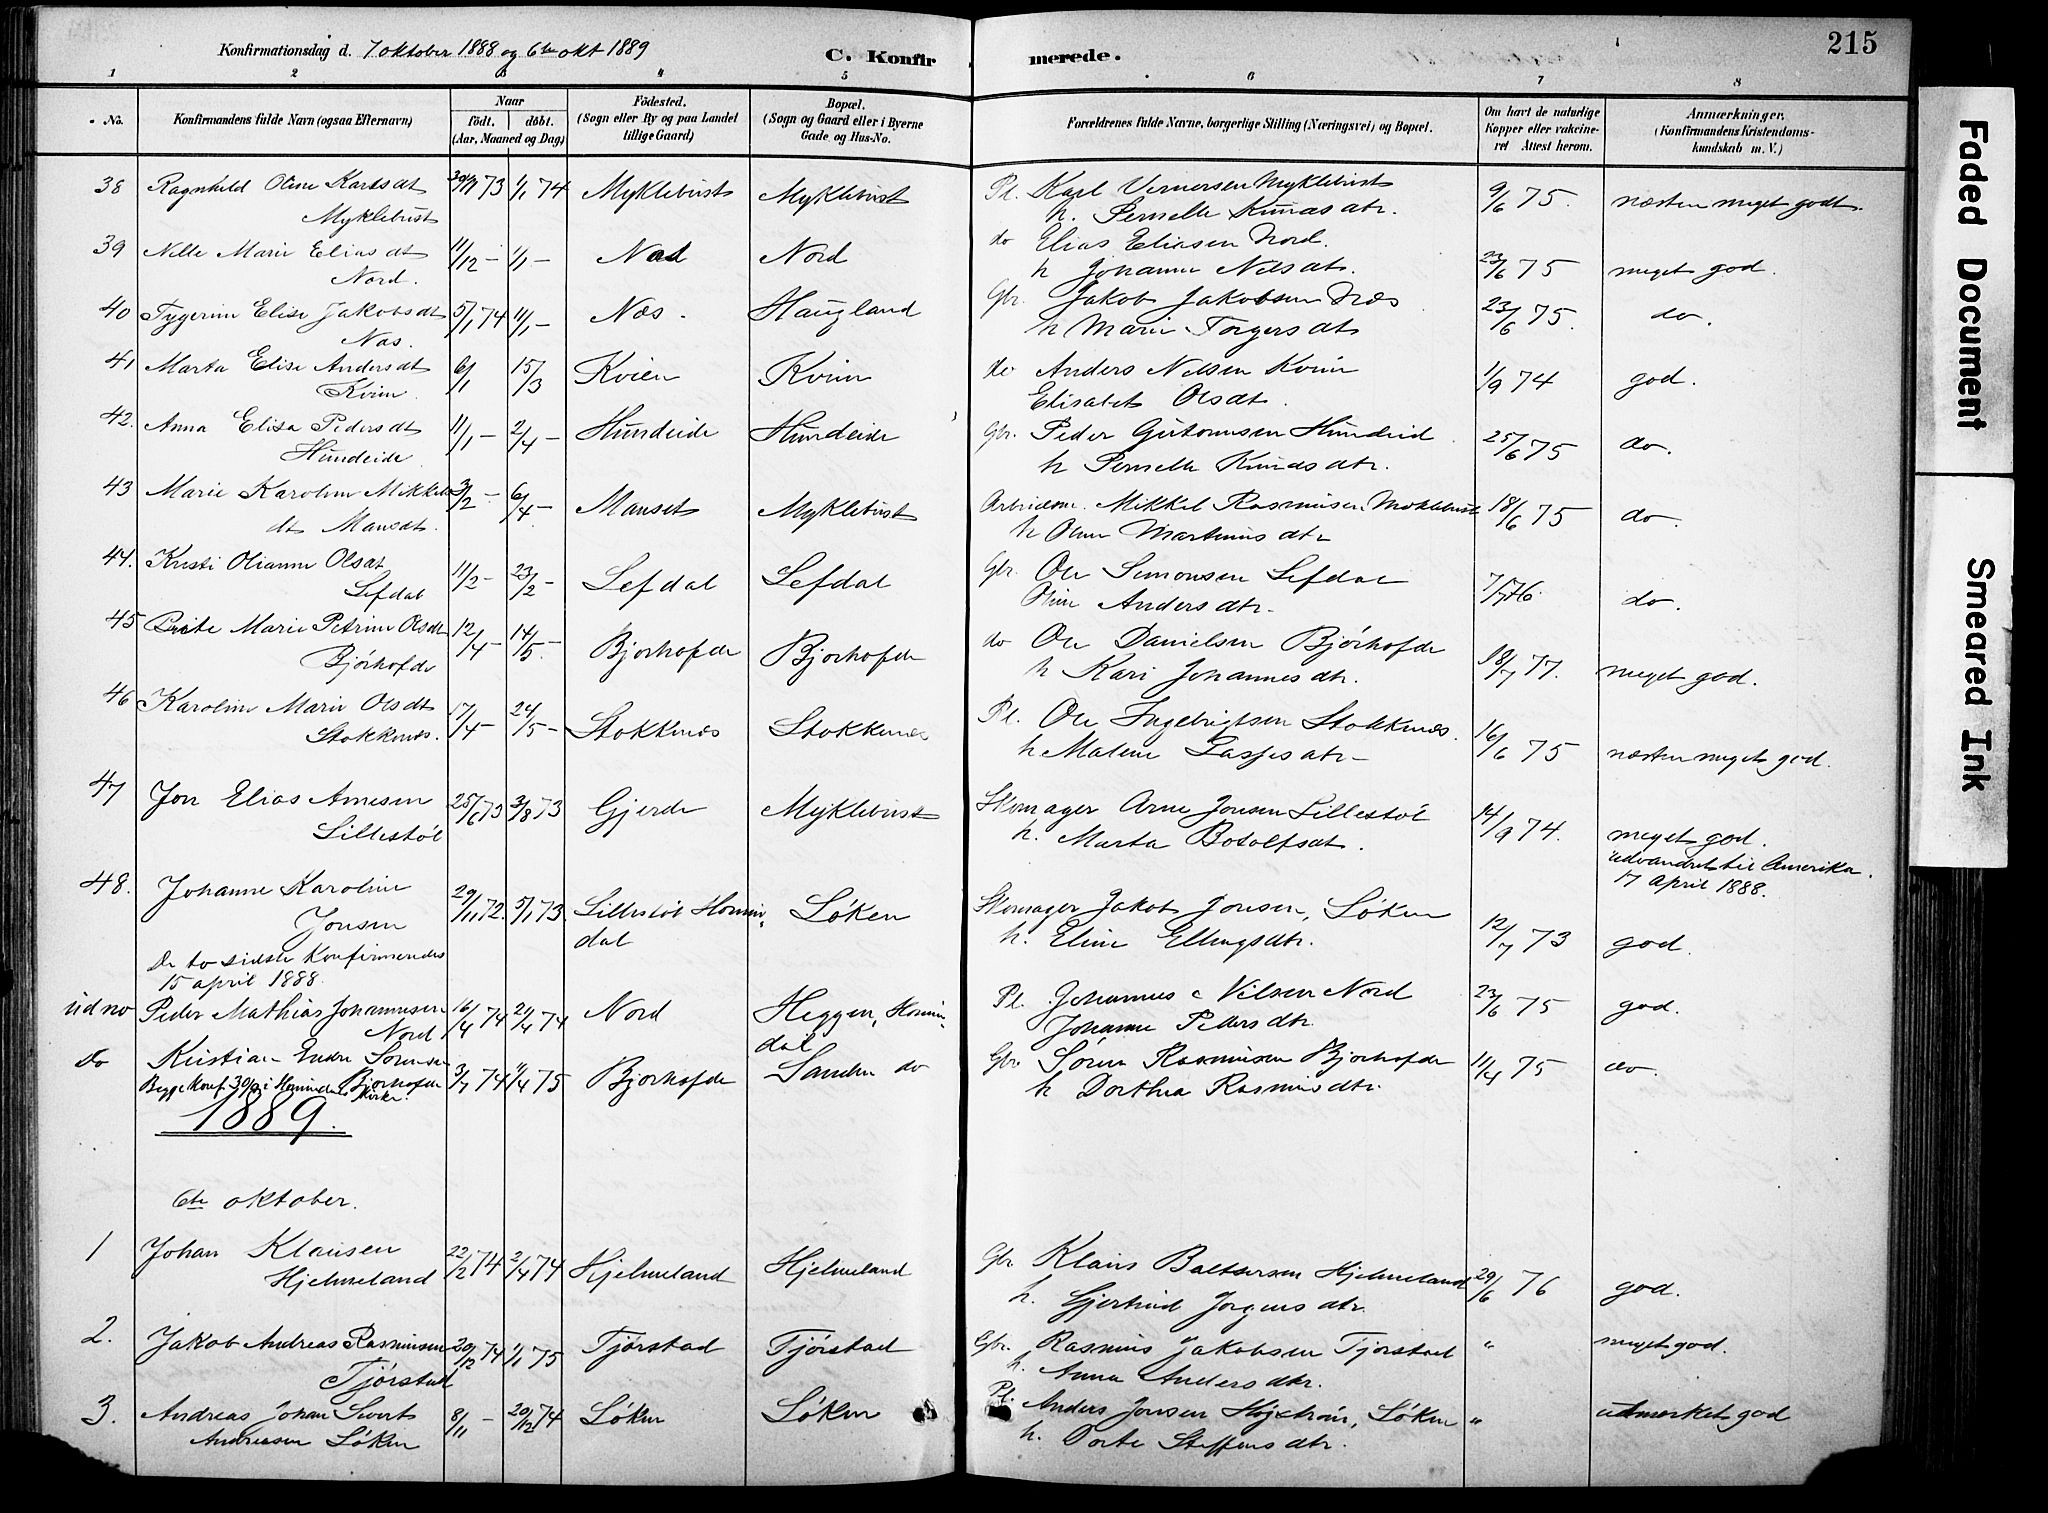 215
Konfirmationsdag d. 7 oktober 1888 og 6te okt 1889
C. Konfirmerede.
1 2 3 4 5 6 7 8
No.
Konfirmandens fulde Navn (ogsaa Efternavn)
Naar
født. døbt.
(Aar, Maaned og Dag)
Fødested.
(Sogn eller By og paa Landet
tillige Gaard)
Bopæl.
(Sogn og Gaard eller i Byerne
Gade og Hus-No.
Forældrenes fulde Navne, borgerlige Stilling (Næringsvei) og Bopæl.
Om havt de naturlige
Kopper eller vakcine-
ret Attest herom.
Anmærkninger.
(Konfirmandens Kristendoms-
kundskab m. V.)
38 Ragnhild Oline Karlsdt 73 1/1 74 Myklebust Myklebust Pl. Karl Vernersen Myklebust 9/6 75. næsten meget godt.
Myklebust h. Pernelle Knudsdtr.
39 Nelle Marie Eliasdt 11/12 - 1/1 - Nord Nord do Elias Eliasen Nord. 23/6 75 meget god.
Nord. h Johanne Nilsdt.
40 Elise Jakobsdt 5/1 74 11/1 - Næs. Haugland Gbr. Jakob Jakobsen Næs 23/6 75. do.
Næs. h Marie Torgersdt
41 Marta Elise Andersdt 6/1 15/3 Kvien Kviin do Anders Nilsen Kviin 1/9 74 god.
Kviin. Elisabet Olsdt.
42. Anna Elisa Pedersdt 11/1 - 2/4 - Hundeide Hundeide Gbr. Peder Hundeid 25/6 75 do.
Hundeide h Pernelle Knudsdtr.
43 Marie Karolin Mikkels 3/2 - 6/4 - Manset Myklebust Mikkel Rasmusen Myklebust 18/6 75 do.
dt h Oline Martinusdtr
44. Kristi Olianne Olsdt 11/2 - 23/2 - Lefdal Lefdal Gbr. Ole Simonsen Lefdal 7/7 76. do.
Lefdal Oline Andersdtr.
45 Marie Petrine Olsdt 12/4 - 14/5 - Bjørhofde Bjørhofde do Ole Danielsen Bjørhofde 18/7 77. meget god.
Bjørhofde h Kari Johannesdtr.
46 Karoline Marie Olsdt 17/4 - 24/5 - Stokkenæs Stokkenæs Pl. Ole Ingebrigtsen Stokknæs. 16/6 75 næsten meget god.
Stokkenæs. h Malene Lassesdtr
47 Jon Elias Arnesen 25/6 73 3/8 73 Gjerde Myklebust Skomager Arne Jonsen Lillestøl 14/9 74. meget god.
Lillestøl h. Marta Botolfsdt. udvandret til Amerika.
17 April 1888.
48. Johanne Karoline 29/11 72. 5/1 73 Lillestøl Hornin- Løken Skomager Jakob Jonsen, Løken 12/7 73 god.
Jonsen dal h. Eline Ellingsdtr.
De to sidste Konfirmeredes
15 april 1888.
ud no Peder Mathias Johannesen 16/4 74 21/4 74 Nord Heggen, Hornin- Pl. Johannes Nilsen Nord 23/6 75 god.
Nord dal Johanne Pedersdtr.
Do Kristian Endre Sørensen 3/7 74 75 Bjørhofde Sanden do Gbr. Søren Rasmusen Bjørhofde 11/4 75 do.
Begge konf. 30/9 i Hornindals Kirke. Bjørhofde h Dorthea Rasmusdtr.
1889.
6te oktober.
1 Johan Klausen 22/2 74 2/4 74 Hjelmeland Hjelmeland Gbr Klaus Baltsersen Hjelmeland 29/6 76 god.
Hjelmeland h. Gjertrud Jørgensdtr.
2. Jakob Andreas Rasmusen 20/12 74 1/1 75 Tjørstad Tjørstad Gbr. Rasmus Jakobsen Tjørstad " meget god.
Tjørstad h. Anna Andersdtr.
3. Andreas Johan Sivert 8/11 - 20/12 74 Løken Løken Pl. Anders Jonsen, Løken " udmerket god
Andreasen Løken h. Dorte Steffensdtr.
Faded Document
Smeared Ink